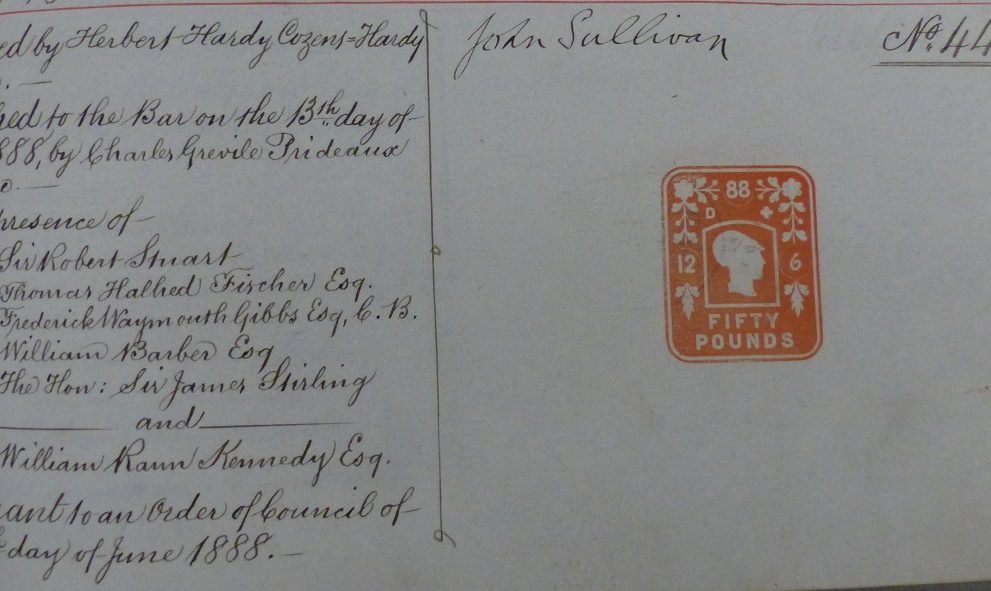 ed by Herbert Hardy Cozens=Hardy
hed to the Bar on the 13th day of
888, by Charles Grevile Prideaux
presence of
Sir Robert Stuart
Thomas Halhed Fischer Esq.
Frederick Waymouth Gibbs Esq, C.B.
William Barber Esq
The Hon: Sir James Stirling
and
William Rann Kennedy Esq.
ant to an Order of Council of
day of June 1888.
John Sullivan
No. 44
88
D
12 6
FIFTY
POUNDS